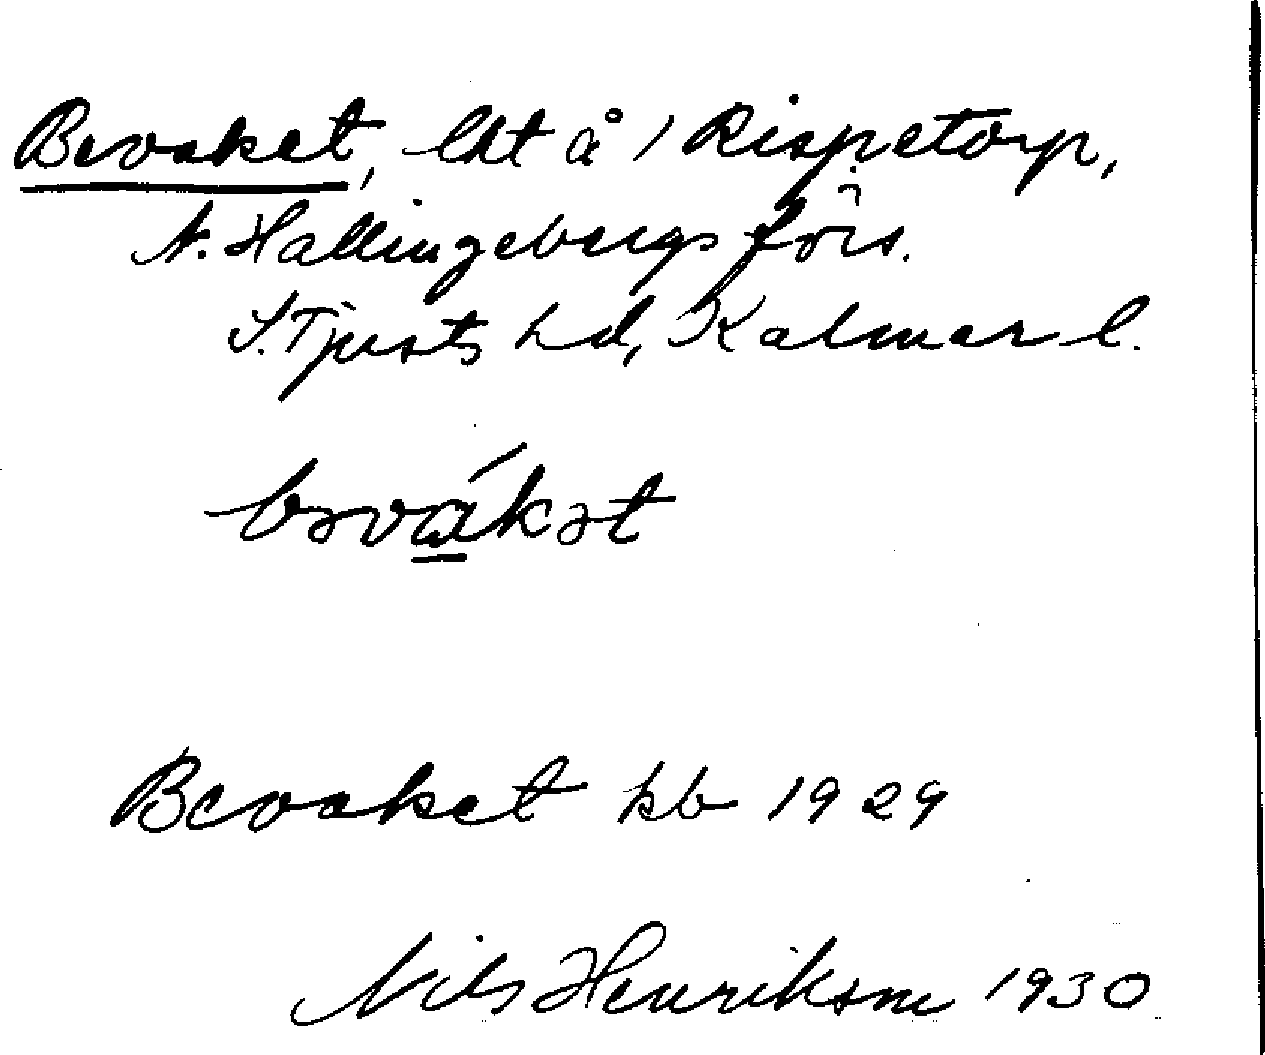 Bevaket, lht å 1 Rispetorp,
N. Hallingebergs förs.
S. Tjusts hd, Kalmar l.
bəvákət
Bevaket kb 1929
Nils Henrikson 1930